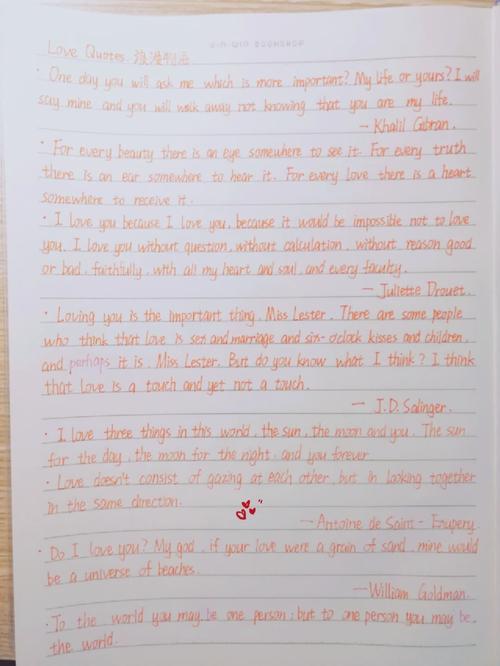 SIN QIU BOOKSHOP
Love Quotes 浪漫物语
· One day you will ask me which is more important? My life or yours? I will
say mine and you will walk away not knowing that you are my life.
— Khalil Gibran.
· For every beauty there is an eye somewhere to see it. For every truth
there is an ear somewhere to hear it. For every love there is a heart
somewhere to receive it.
· I love you because I love you, because it would be impossible not to love
you. I love you without question, without calculation, without reason good
or bad, faithfully, with all my heart and soul, and every faculty.
— Juliette Drouet.
· Loving you is the important thing, Miss Lester. There are some people
who think that love is sex and marriage and six-o'clock kisses and children,
and perhaps it is, Miss Lester. But do you know what I think? I think
that love is a touch and yet not a touch.
— J.D. Salinger.
· I love three things in this world, the sun, the moon and you. The sun
for the day, the moon for the night, and you forever
· Love doesn't consist of gazing at each other, but in looking together
in the same direction.
— Antoine de Saint - Exupery.
· Do I love you? My god, if your love were a grain of sand, mine would
be a universe of beaches.
— William Goldman.
· To the world you may be one person; but to one person you may be
the world.